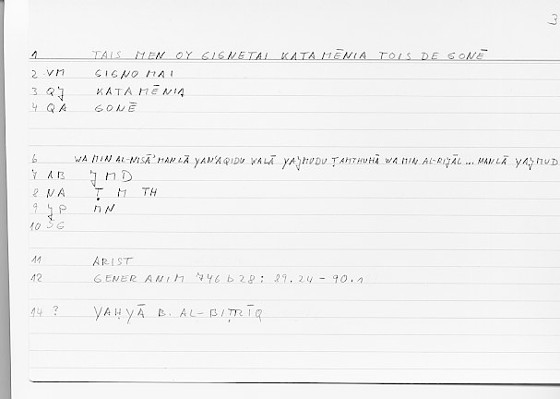 3
1 TAIS MEN OY GIGNETAI KATAMĒNIA TOIS DE GONĒ
2 VM GIGNOMAI
3 QJ KATAMĒNIA
4 QA GONĒ
6 WA MIN AL-NISĀ' MAN LĀ YAN'AQIDU WALĀ YAJMUDU ṬAMTHUHĀ WA MIN AL-RIJĀL ... MAN LĀ YAJMUD
7 AB J M D
8 NA Ṭ M TH
9 JP MN
10 SG
11 ARIST
12 GENER ANIM 746 b 28 : 89.24 - 90.1
14 ? YAḤYĀ B. AL-BIṬRĪQ